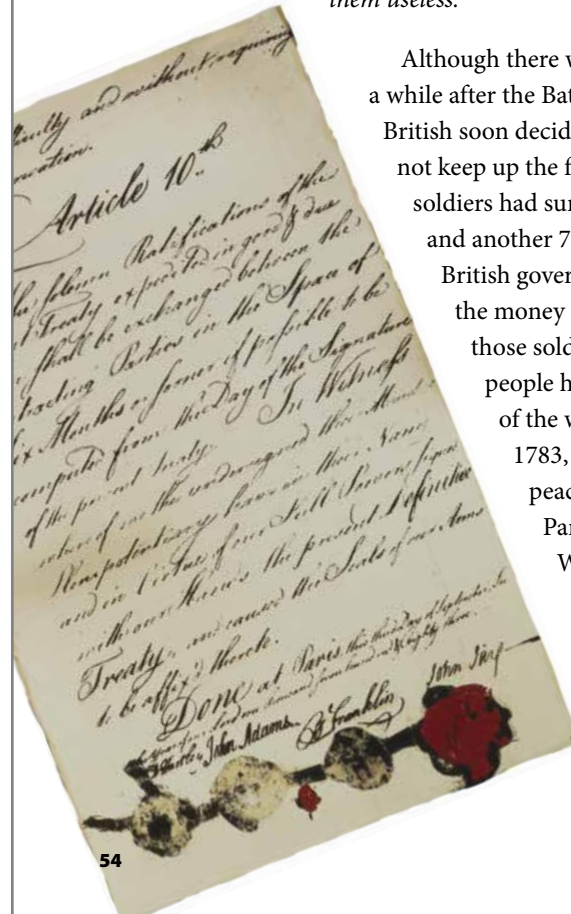 them useless.
Although there w
a while after the Bat
British soon decid
not keep up the f
soldiers had sur
and another 7
British gover
the money
those sold
people h
of the w
1783,
peac
Par
W
and without requiring
Article 10th
solemn Ratifications of the
Treaty expedited in good & due
shall be exchanged between the
Parties in the Space of
Months or sooner if possible to be
computed from the Day of the Signature
of the present Treaty. In Witness
whereof we the undersigned their Ministers
Plenipotentiary have in their Name
and in Virtue of our Full Powers signed
with our Hands the present Definitive
Treaty, and caused the Seals of our Arms
to be affix'd thereto.
Done at Paris, this third Day of September In
the Year of our Lord one thousand seven hundred & eighty three.
D Hartley John Adams B Franklin John Jay
54